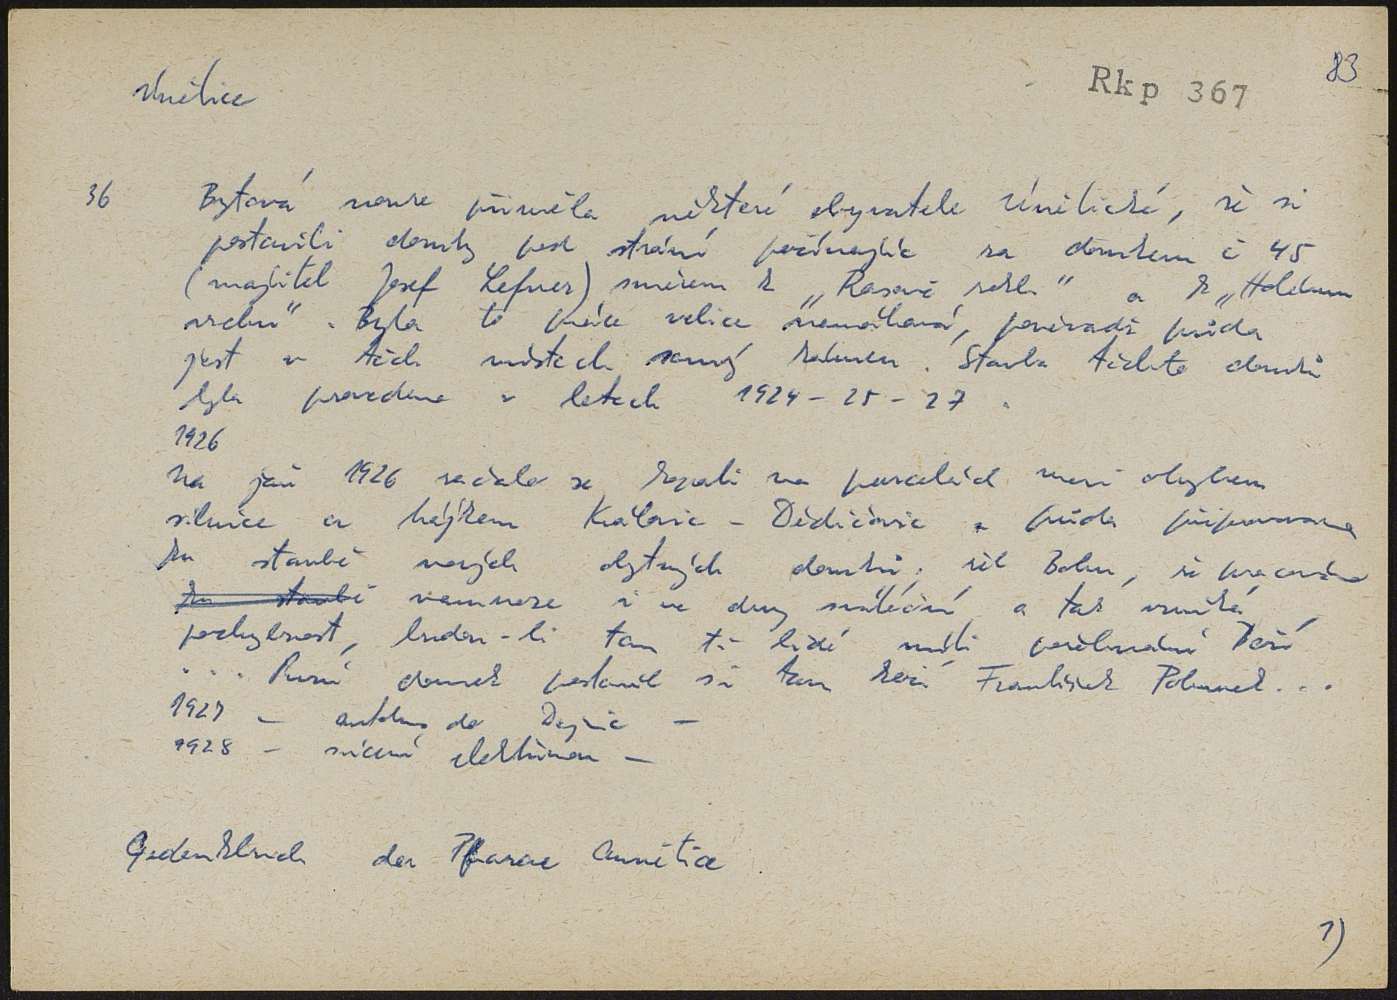 Únětice
Rkp 367
83
36 Bytová nouze přiměla některé obyvatele Únětické, že si
postavili domky pod strání počínajíc za domkem č 45
(majitel Josef Lefner) směrem k „Rasově rokli" a k „Holému
vrchu". Byla to práce velice namáhavá, poněvadž půda
jest v těch místech samý kámen. Stavba těchto domků
byla provedena v letech 1924 - 25 - 27.
1926
Na jaře 1926 začalo se kopati na parcelách mezi ohybem
silnice a hájkem Královic - Dědičovic a půda připravována
ku stavbě nových obytných domků; žel Bohu, že pracováno
ku stavbě namnoze i ve dny sváteční a tak vzniká
pochybnost, budou-li tam ti lidé míti požehnání Boží
... První domek postavil si tam František ...
1927 - autobus do Dejvic -
1928 - svícení elektřinou -
Gedenkbuch der Pfarre Aunětice
1)